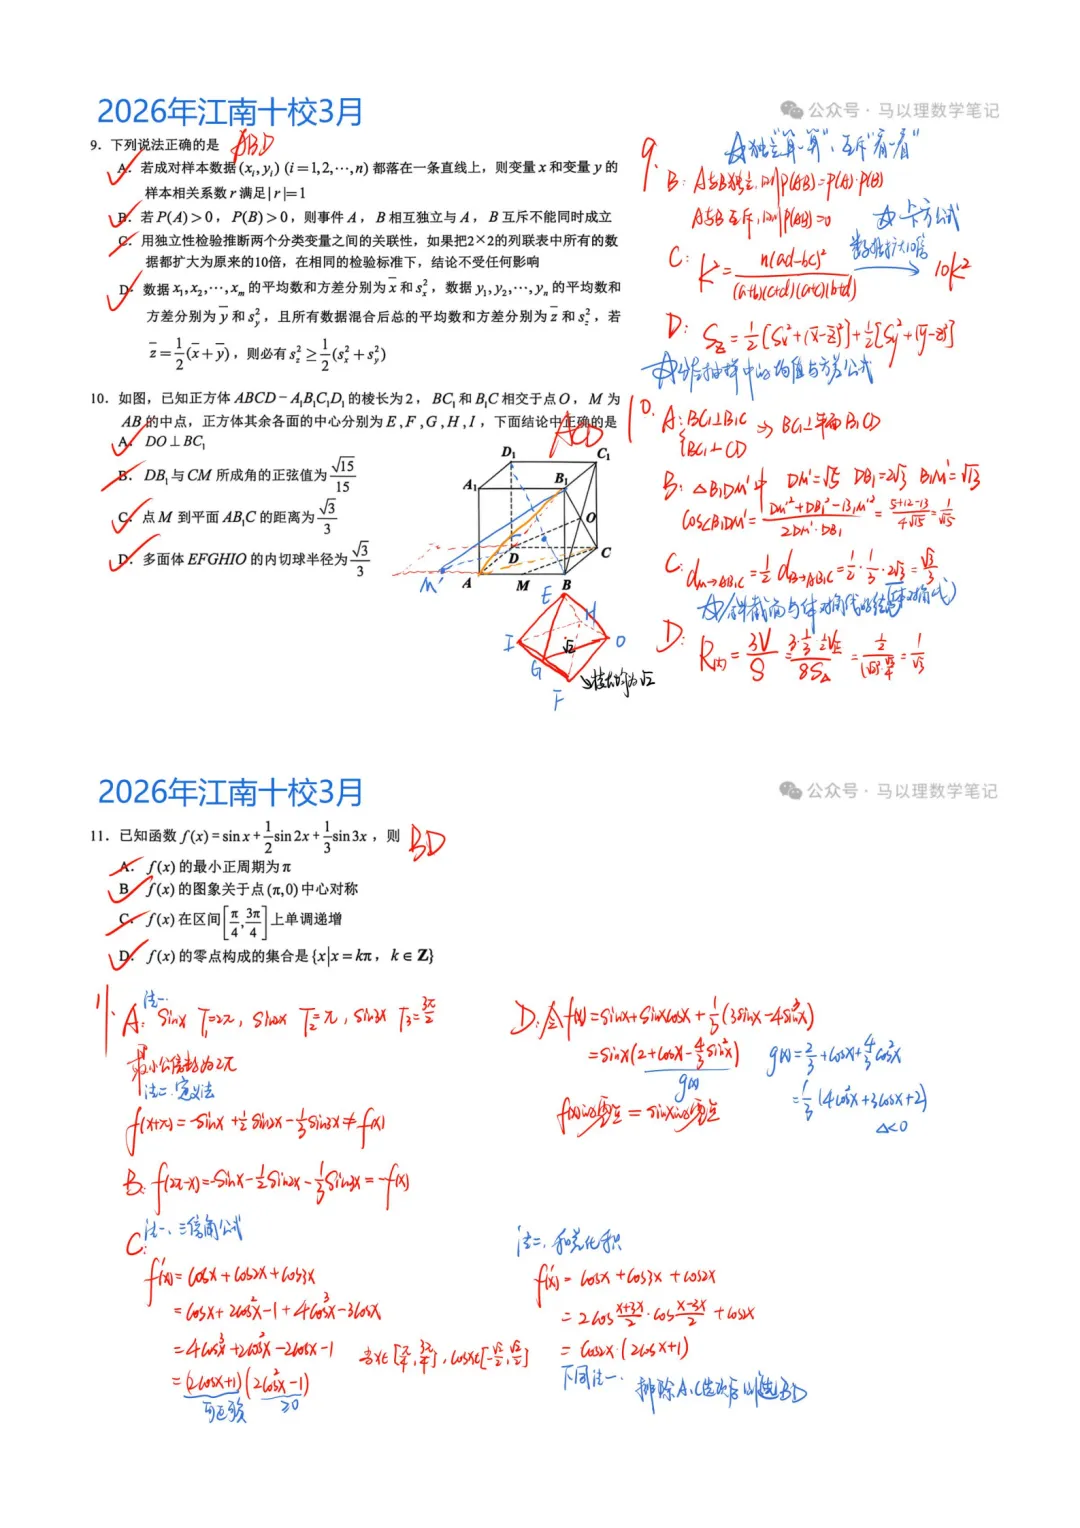 2026年江南十校3月
公众号 · 马以理数学笔记
9. 下列说法正确的是 ABD
A. 若成对样本数据(xᵢ,yᵢ)(i=1,2,⋯,n)都落在一条直线上，则变量x和变量y的
样本相关系数r满足|r|=1
B. 若P(A)>0，P(B)>0，则事件A，B相互独立与A，B互斥不能同时成立
C. 用独立性检验推断两个分类变量之间的关联性，如果把2×2的列联表中所有的数
据都扩大为原来的10倍，在相同的检验标准下，结论不受任何影响
D. 数据x₁,x₂,⋯,xₘ的平均数和方差分别为x̄和sₓ²，数据y₁,y₂,⋯,yₙ的平均数和
方差分别为ȳ和s_y²，且所有数据混合后总的平均数和方差分别为z̄和s_z²，若
z̄=1/2(x̄+ȳ)，则必有s_z²≥1/2(sₓ²+s_y²)
9. 独立"算一算"，互斥"看一看"
B: A与B独立，则P(AB)=P(A)·P(B)
A与B互斥，则P(AB)=0
卡方公式
C: K²=n(ad-bc)²/(a+b)(c+d)(a+c)(b+d) 数据扩大10倍 → 10K²
D: S_z=1/2[Sx²+(x̄-z̄)²]+1/2[Sy²+(ȳ-z̄)²]
分层抽样中的均值与方差公式
10. 如图，已知正方体ABCD-A₁B₁C₁D₁的棱长为2，BC₁和B₁C相交于点O，M为
AB的中点，正方体其余各面的中心分别为E,F,G,H,I，下面结论中正确的是
ACD
A. DO⊥BC₁
B. DB₁与CM所成角的正弦值为√15/15
C. 点M到平面AB₁C的距离为√3/3
D. 多面体EFGHIO的内切球半径为√3/3
D₁ C₁
A₁ B₁
O
D C
A M B
M'
E
H
I O
√2
G
F
棱长均为√2
10. A: BC₁⊥B₁C
BC₁⊥CD
⇒ BC₁⊥平面B₁CD
B: △B₁DM'中 DM'=√5 DB₁=2√3 B₁M'=√13
cos∠B₁DM'=DM'²+DB₁²-B₁M'²/2DM'·DB₁=5+12-13/4√15=1/√15
C: d M→AB₁C=1/2 d B→AB₁C=1/2·1/3·2√3=√3/3
(体对角线)
斜截面与体对角线的结论
D: R内=3V/S
2026年江南十校3月
公众号 · 马以理数学笔记
11. 已知函数f(x)=sin x+1/2 sin 2x+1/3 sin 3x，则 BD
A. f(x)的最小正周期为π
B. f(x)的图象关于点(π,0)中心对称
C. f(x)在区间[π/4,3π/4]上单调递增
D. f(x)的零点构成的集合是{x|x=kπ，k∈Z}
11. 法一.
A: sinx T₁=2π, sin2x T₂=π, sin3x T₃=2π/3
最小公倍数为2π
法二. 定义法
f(x+π)=-sinx+1/2 sin2x-1/3 sin3x≠f(x)
B: f(2π-x)=-sinx-1/2 sin2x-1/3 sin3x=-f(x)
C: 法一. 三倍角公式
f'(x)=cosx+cos2x+cos3x
=cosx+2cos²x-1+4cos³x-3cosx
=4cos³x+2cos²x-2cosx-1
=(2cosx+1)(2cos²x-1)
可正可负 ≤0
当x∈[π/4,3π/4], cosx∈[-√2/2,√2/2]
D: 令f(x)=sinx+sinxcosx+1/3(3sinx-4sin³x)
=sinx(2+cosx-4/3 sin²x)
g(x)
g(x)=2/3+cosx+4/3 cos²x
=1/3(4cos²x+3cosx+2)
△<0
f(x)的零点=sinx的零点
法二. 和差化积
f'(x)=cosx+cos3x+cos2x
=2cos x+3x/2·cos x-3x/2+cos2x
=cos2x·(2cosx+1)
下同法一.
排除A、C选项后则选BD